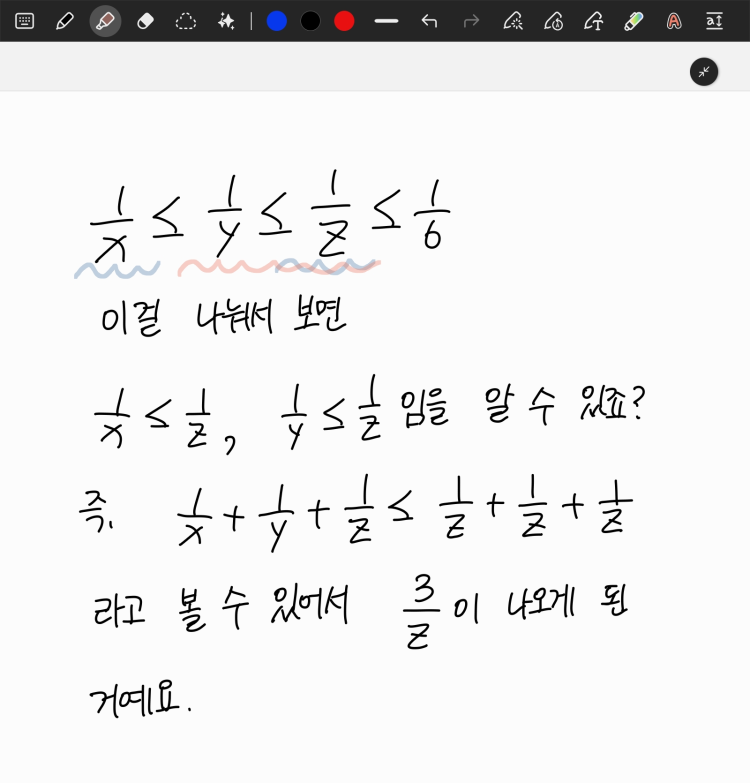 1/x ≤ 1/y ≤ 1/z ≤ 1/6
이걸 나눠서 보면
1/x ≤ 1/z, 1/y ≤ 1/z 임을 알 수 있죠?
즉, 1/x + 1/y + 1/z ≤ 1/z + 1/z + 1/z
라고 볼 수 있어서 3/z 이 나오게 된
거예요.